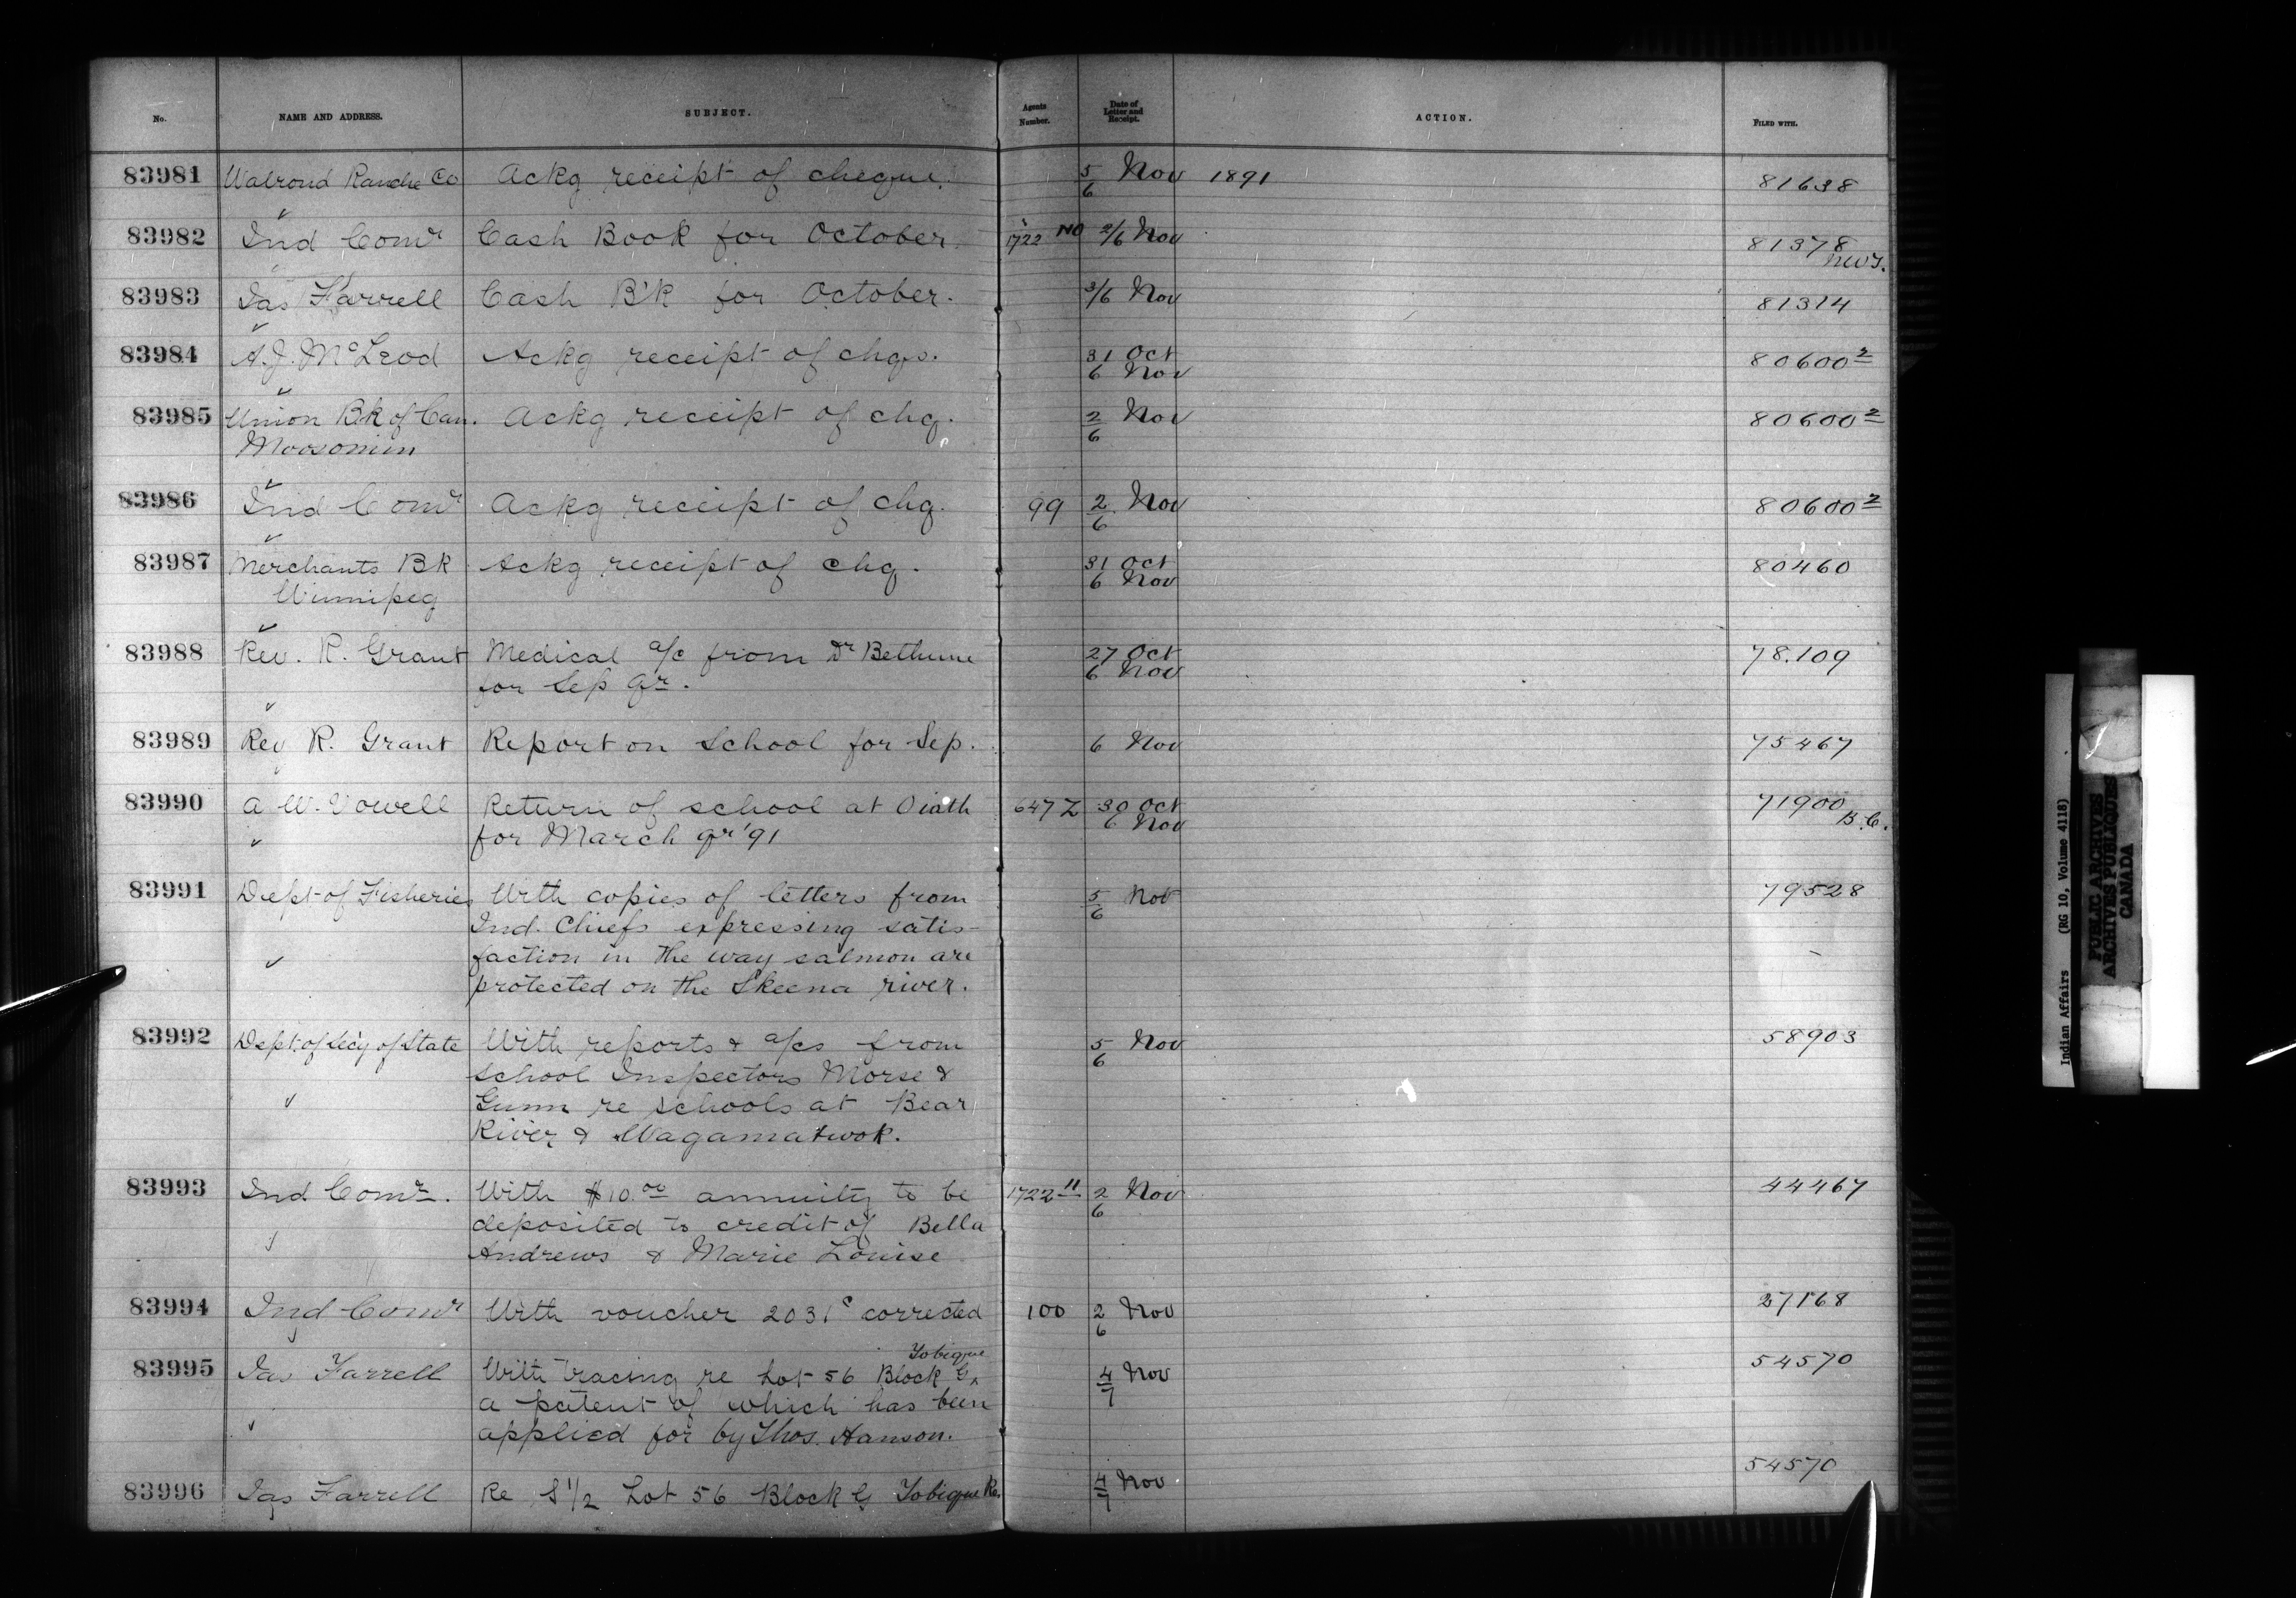 No. NAME AND ADDRESS. SUBJECT. Agents Number. Date of Letter and Receipt. ACTION. FILED WITH.
83981 Walrond Ranche Co Ackg receipt of cheque. 5/6 Nov 1891 81638
83982 Ind Comr Cash Book for October. 1722 NO 2/6 Nov 81378
NWT.
83983 Jas Farrell Cash B'k for October. 3/6 Nov 81314
83984 A.J. McLeod Ackg receipt of chqs. 31 Oct 80600 2
6 Nov
83985 Union Bk of Can. Ackg receipt of chq. 2/6 Nov 80600 2
Moosomin
83986 Ind Comr Ackg receipt of chq. 99 2/6 Nov 80600 2
83987 Merchants Bk Ackg receipt of chq. 31 Oct 80460
Winnipeg 6 Nov
83988 Rev. R. Grant Medical a/c from Dr Bethune 27 Oct 78.109
for Sep qr. 6 Nov
83989 Rev R. Grant Report on School for Sep. 6 Nov 75467
83990 A. W. Vowell Return of school at Oiath 647 Z 30 Oct 71900
for March qr '91 6 Nov B.C.
83991 Dept of Fisheries With copies of letters from 5/6 Nov 79528
Ind. Chiefs expressing satis-
faction in the way salmon are
protected on the Skeena river.
83992 Dept. of Secy of State With reports & a/cs from 5/6 Nov 58903
school Inspectors Morse &
Gunn re schools at Bear
River & Wagamatwok.
83993 Ind Comr. With $10.00 annuity to be 1722 11 2/6 Nov 44467
deposited to credit of Bella
Andrews & Marie Louise
83994 Ind Comr With voucher 2031c corrected 100 2/6 Nov 27168
Tobique
83995 Jas Farrell With tracing re Lot 56 Block G 4/7 Nov 54570
a patent of which has been
applied for by Thos. Hanson.
83996 Jas Farrell Re S 1/2 Lot 56 Block G Tobique Re. 4/7 Nov 54570
Indian Affairs (RG 10, Volume 4118)
PUBLIC ARCHIVES
ARCHIVES PUBLIQUES
CANADA